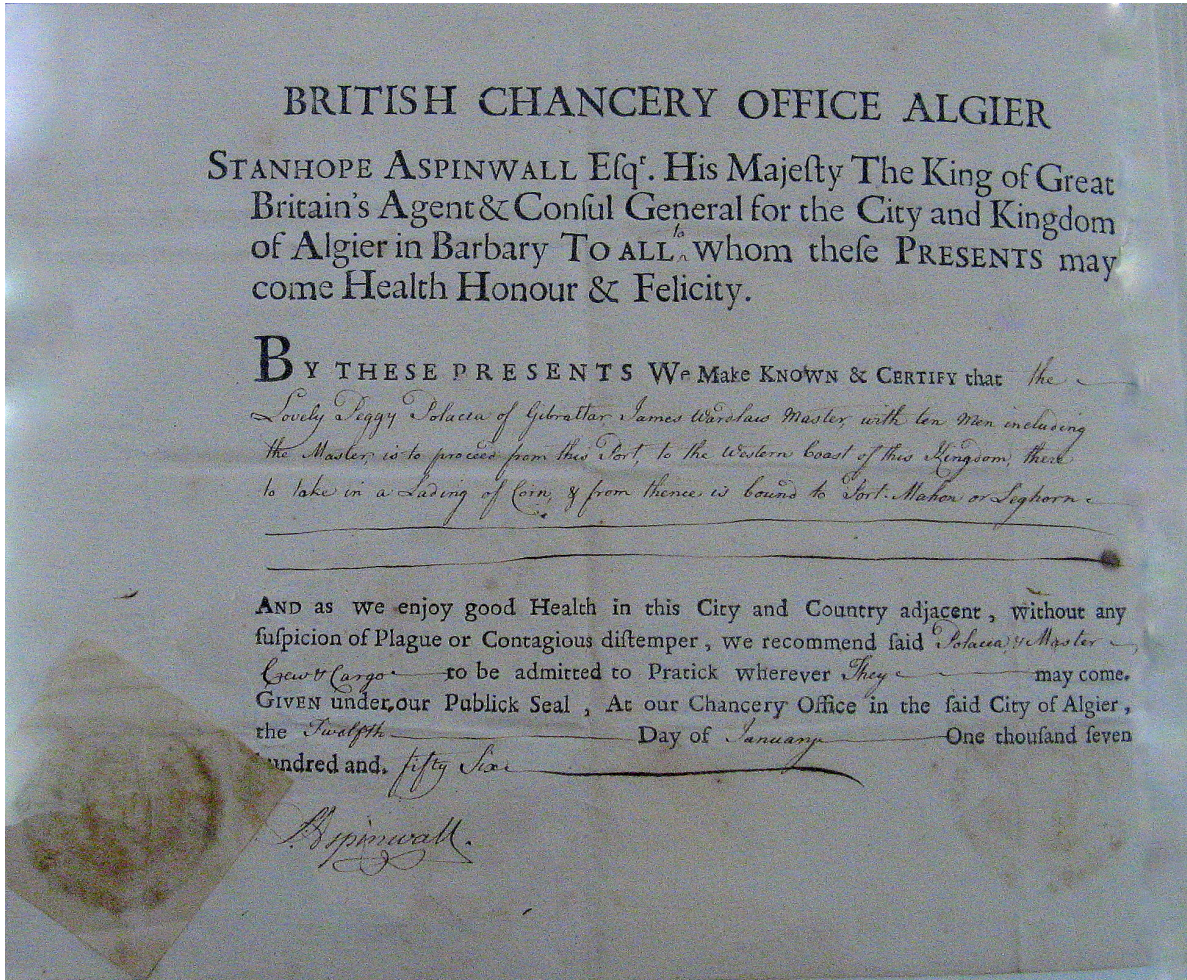 BRITISH CHANCERY OFFICE ALGIER
STANHOPE ASPINWALL Eſqʳ. His Majeſty The King of Great
Britain's Agent & Conſul General for the City and Kingdom
of Algier in Barbary TO ALL to whom theſe PRESENTS may
come Health Honour & Felicity.
BY THESE PRESENTS We Make KNOWN & CERTIFY that the
Lovely Peggy Polacca of Gibraltar, James Warslaw Master, with ten Men including
the Master, is to proceed from this Port, to the Western Coast of this Kingdom, there
to take in a Lading of Corn, & from thence is bound to Port-Mahon or Leghorn
AND as we enjoy good Health in this City and Country adjacent, without any
ſuſpicion of Plague or Contagious diſtemper, we recommend ſaid Polacca & Master
Crew & Cargo to be admitted to Pratick wherever They may come.
GIVEN under our Publick Seal, At our Chancery Office in the ſaid City of Algier,
the Twelfth Day of January One thouſand ſeven
hundred and. fifty Six
SAspinwall.